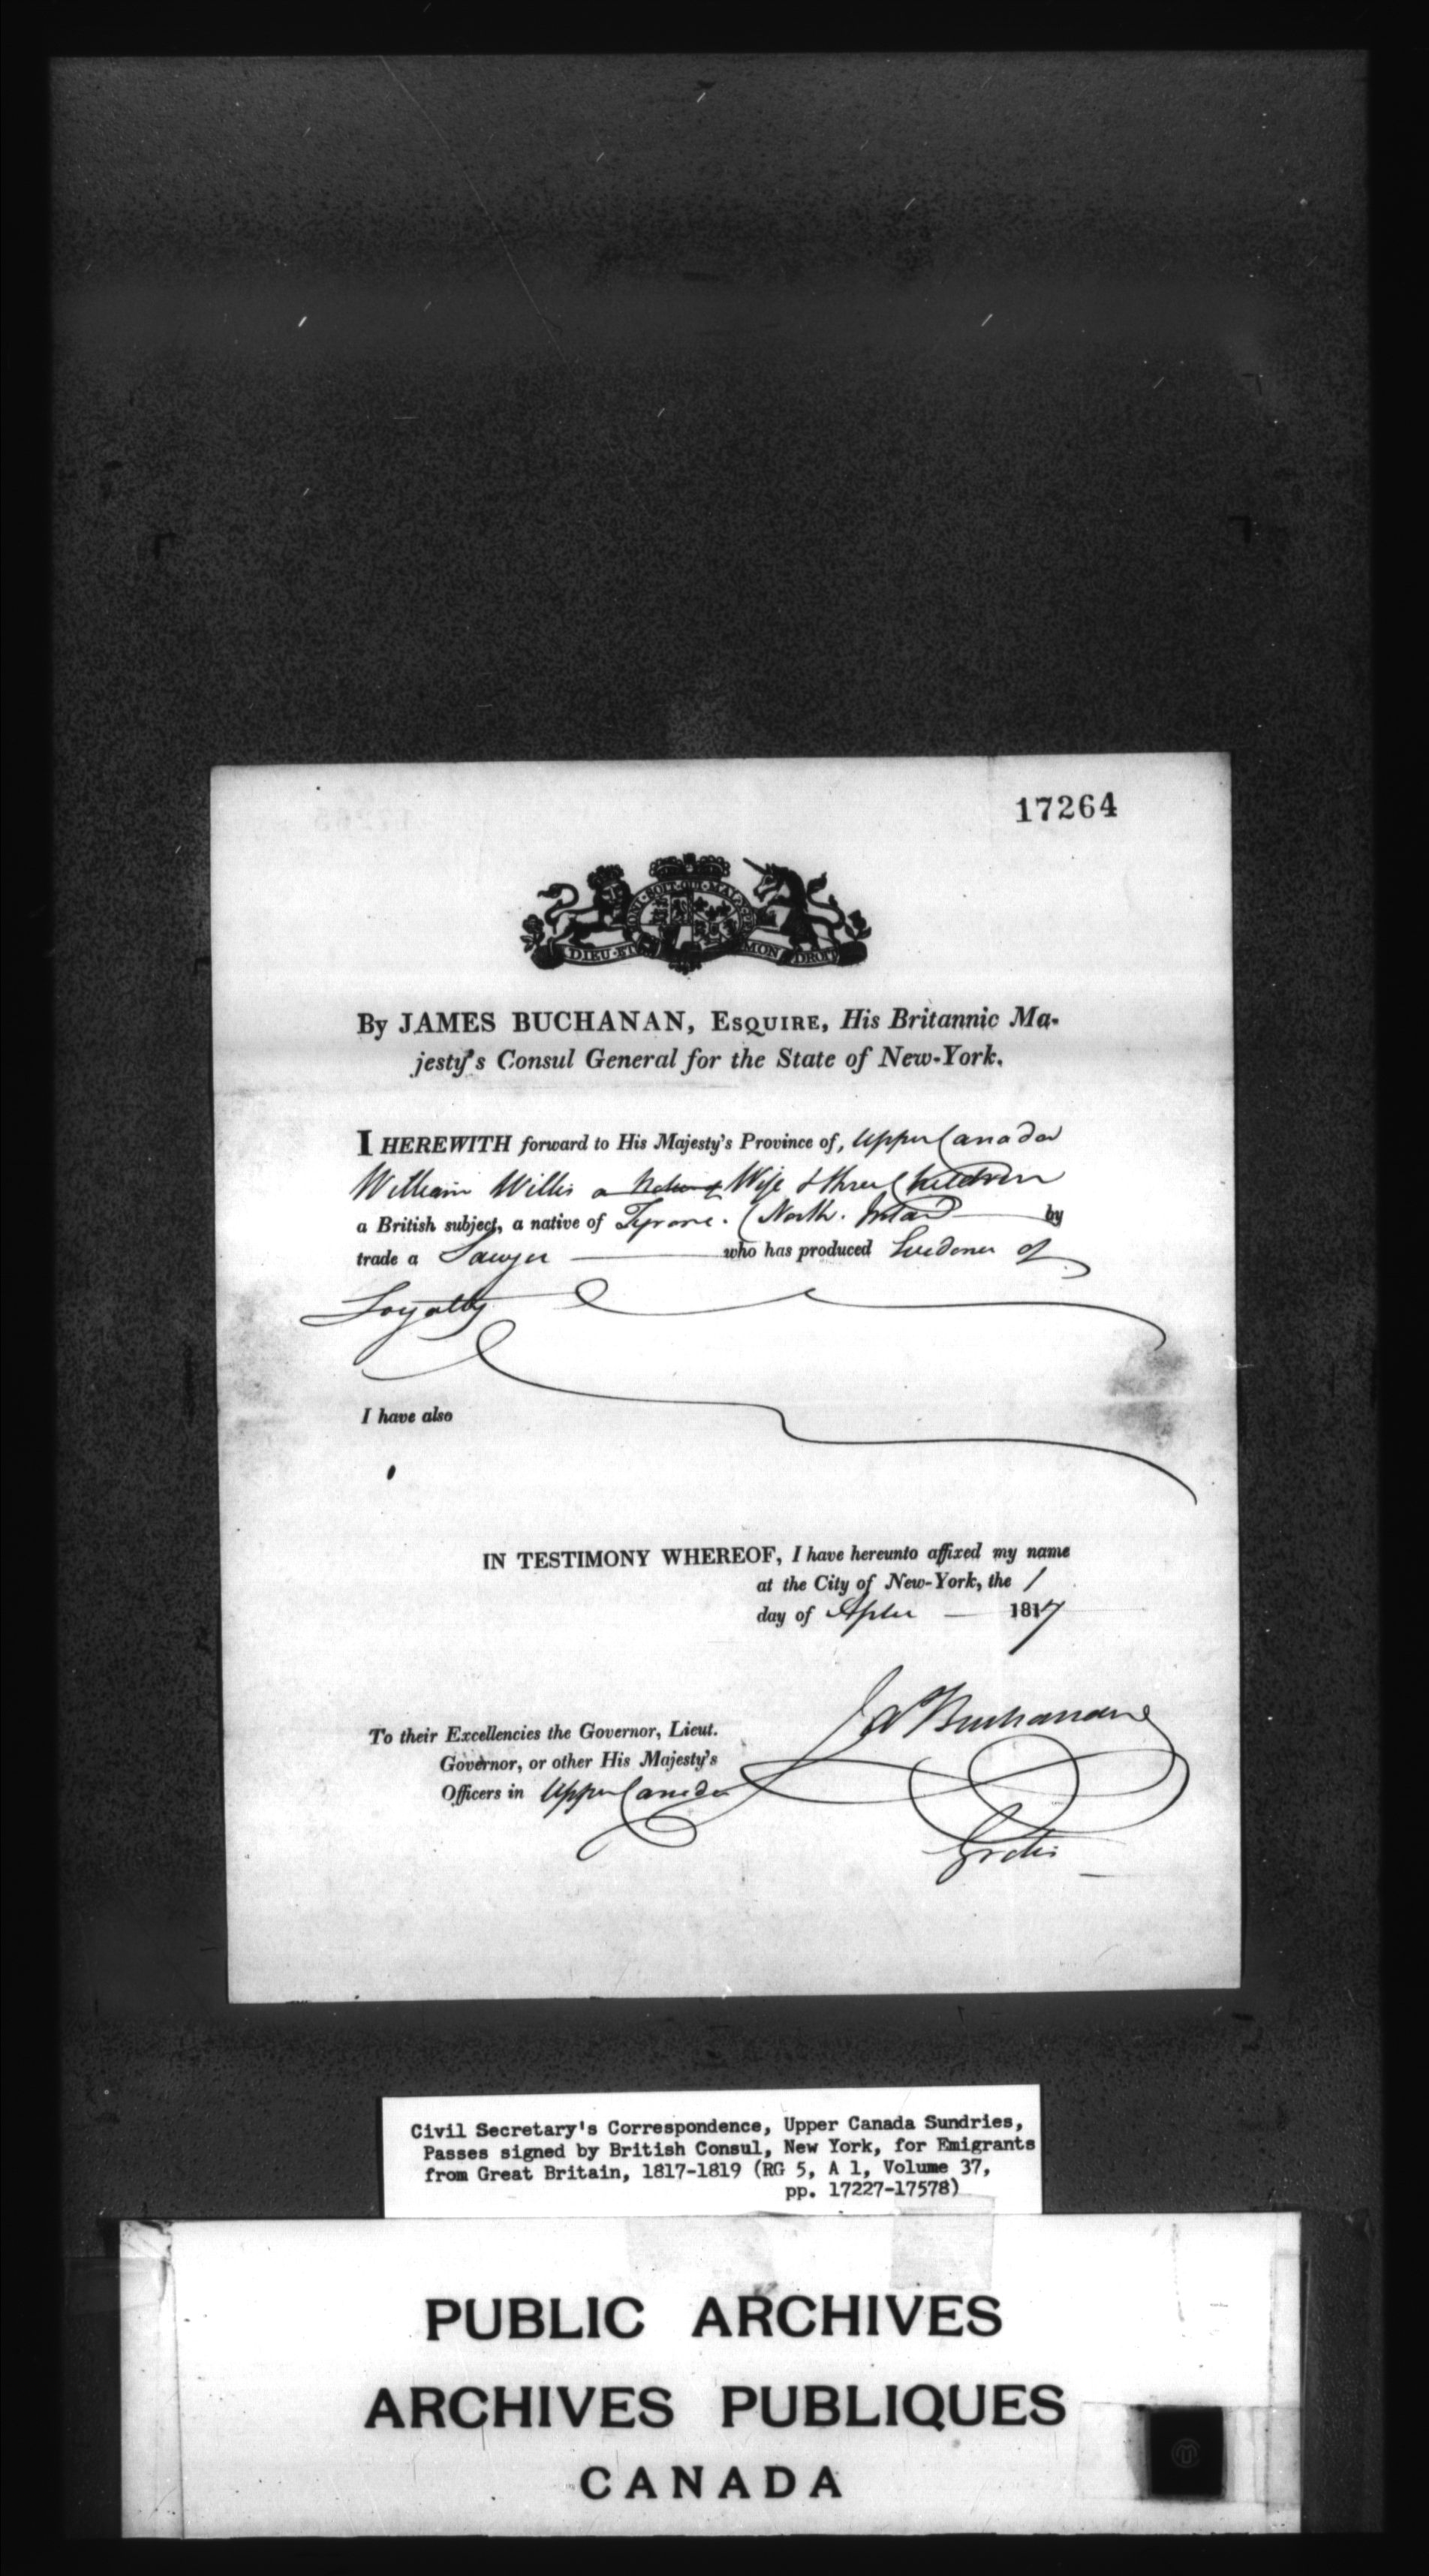 17264
HONI·SOIT·QUI·MAL·Y·PENSE
DIEU·ET MON DROIT
By JAMES BUCHANAN, ESQUIRE, His Britannic Ma-
jesty's Consul General for the State of New-York.
I HEREWITH forward to His Majesty's Province of, Upper Canada
William Willis a Wife & three Children
a British subject, a native of Tyrone. (North. Ireland by
trade a Sawyer who has produced Evidence of
Loyalty
I have also
IN TESTIMONY WHEREOF, I have hereunto affixed my name
at the City of New-York, the 1
day of 1817
Ja Buchanan
To their Excellencies the Governor, Lieut.
Governor, or other His Majesty's
Officers in Upper Canada
Gratis
Civil Secretary's Correspondence, Upper Canada Sundries,
Passes signed by British Consul, New York, for Emigrants
from Great Britain, 1817-1819 (RG 5, A 1, Volume 37,
pp. 17227-17578)
PUBLIC ARCHIVES
ARCHIVES PUBLIQUES
CANADA